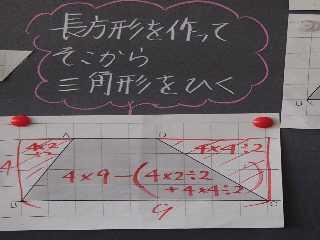 長方形を作って
そこから
三角形をひく
A
D
4×2
÷2
4×4÷2
4
4×9-(4×2÷2
+4×4÷2)
B
C
9